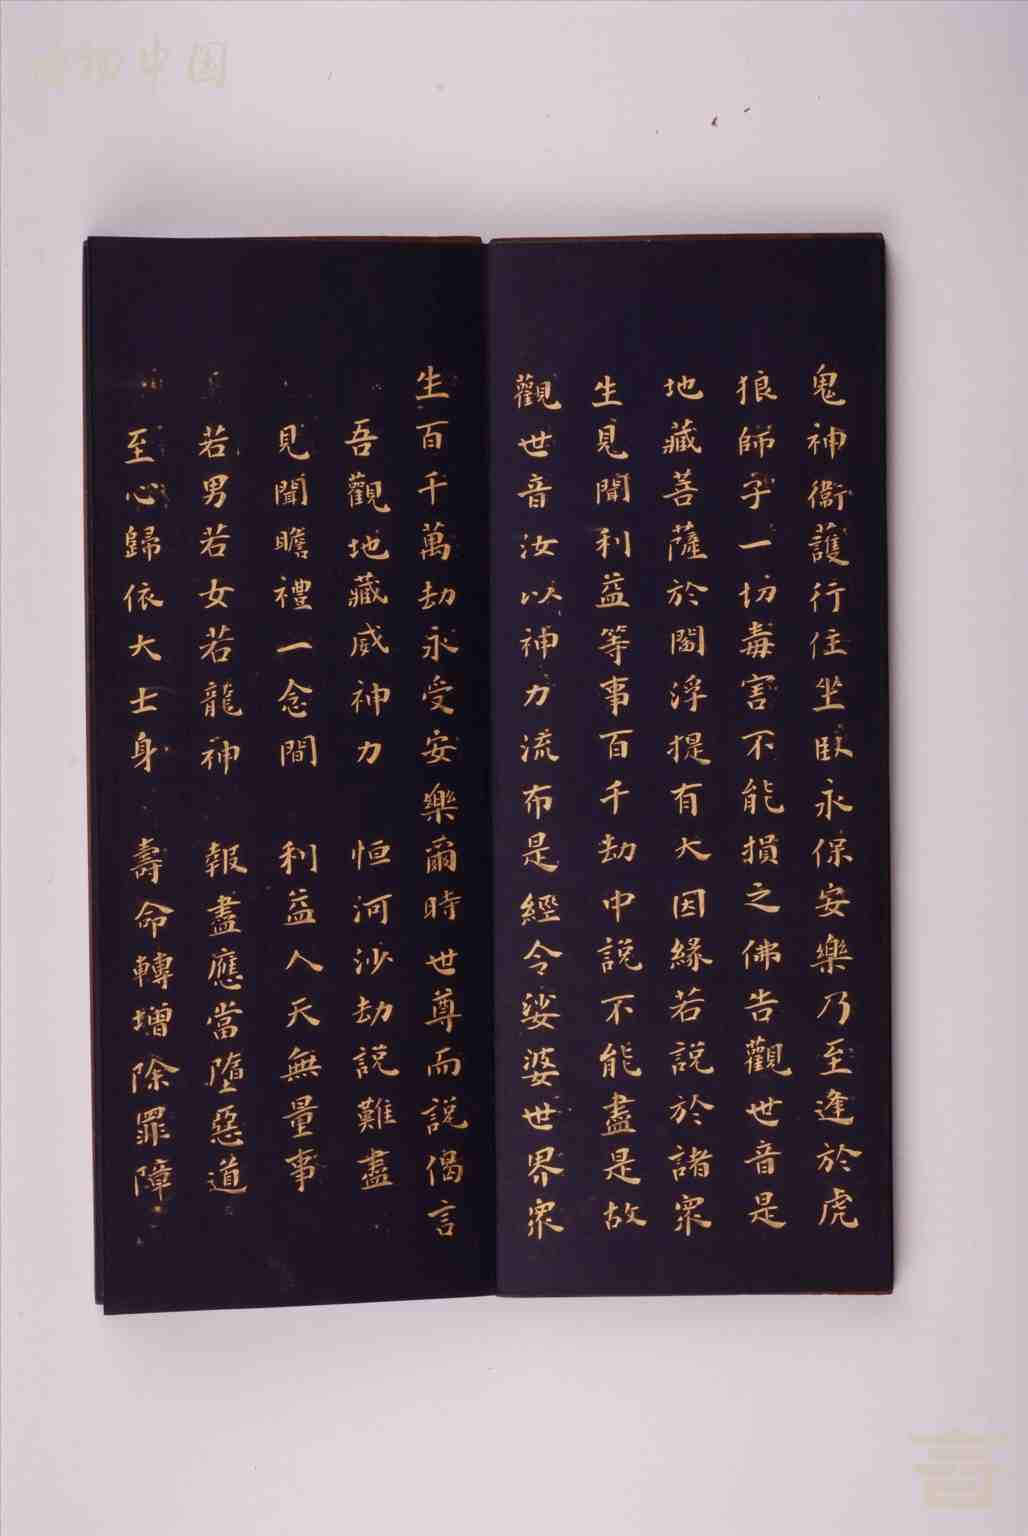 鬼神衞護行住坐臥永保安樂乃至逢於虎
狼師子一切毒害不能損之佛告觀世音是
地藏菩薩於閻浮提有大因緣若說於諸眾
生見聞利益等事百千劫中說不能盡是故
觀世音汝以神力流布是經令娑婆世界眾
生百千萬劫永受安樂爾時世尊而說偈言
吾觀地藏威神力 恒河沙劫說難盡
見聞瞻禮一念間 利益人天無量事
若男若女若龍神 報盡應當墮惡道
至心歸依大士身 壽命轉增除罪障
中国